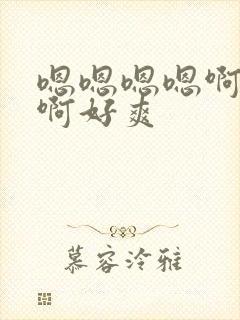 嗯嗯嗯嗯啊
啊好爽
慕容泠雅